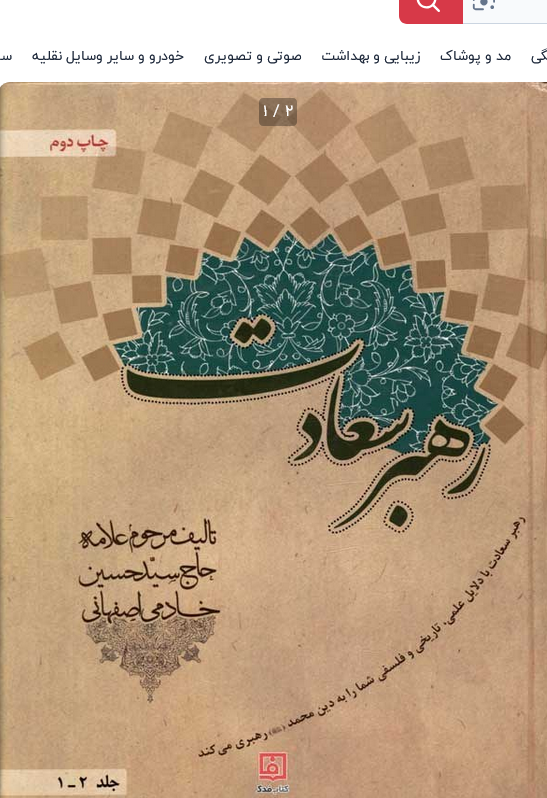 گی مد و پوشاک زیبایی و بهداشت صوتی و تصویری خودرو و سایر وسایل نقلیه
۱ / ۲
چاپ دوم
رهبر سعادت
تالیف مرحوم علامه
حاج سیّد حسین
خادمی اصفهانی
رهبر سعادت با دلایل علمی، تاریخی و فلسفی شما را به دین محمد رهبری می کند
جلد ۲ ـ ۱
کتاب مدک